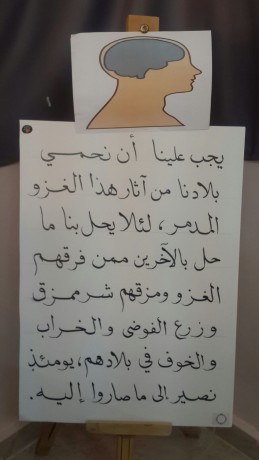 يجب علينا أن نحمي
بلادنا من آثار هذا الغزو
المدمر، لئلا يحل بنا ما
حل بالآخرين ممن فرقهم
الغزو ومزقهم شر ممزق
وزرع الفوضى والخراب
والخوف في بلادهم، يومئذ
نصير إلى ما صاروا إليه.